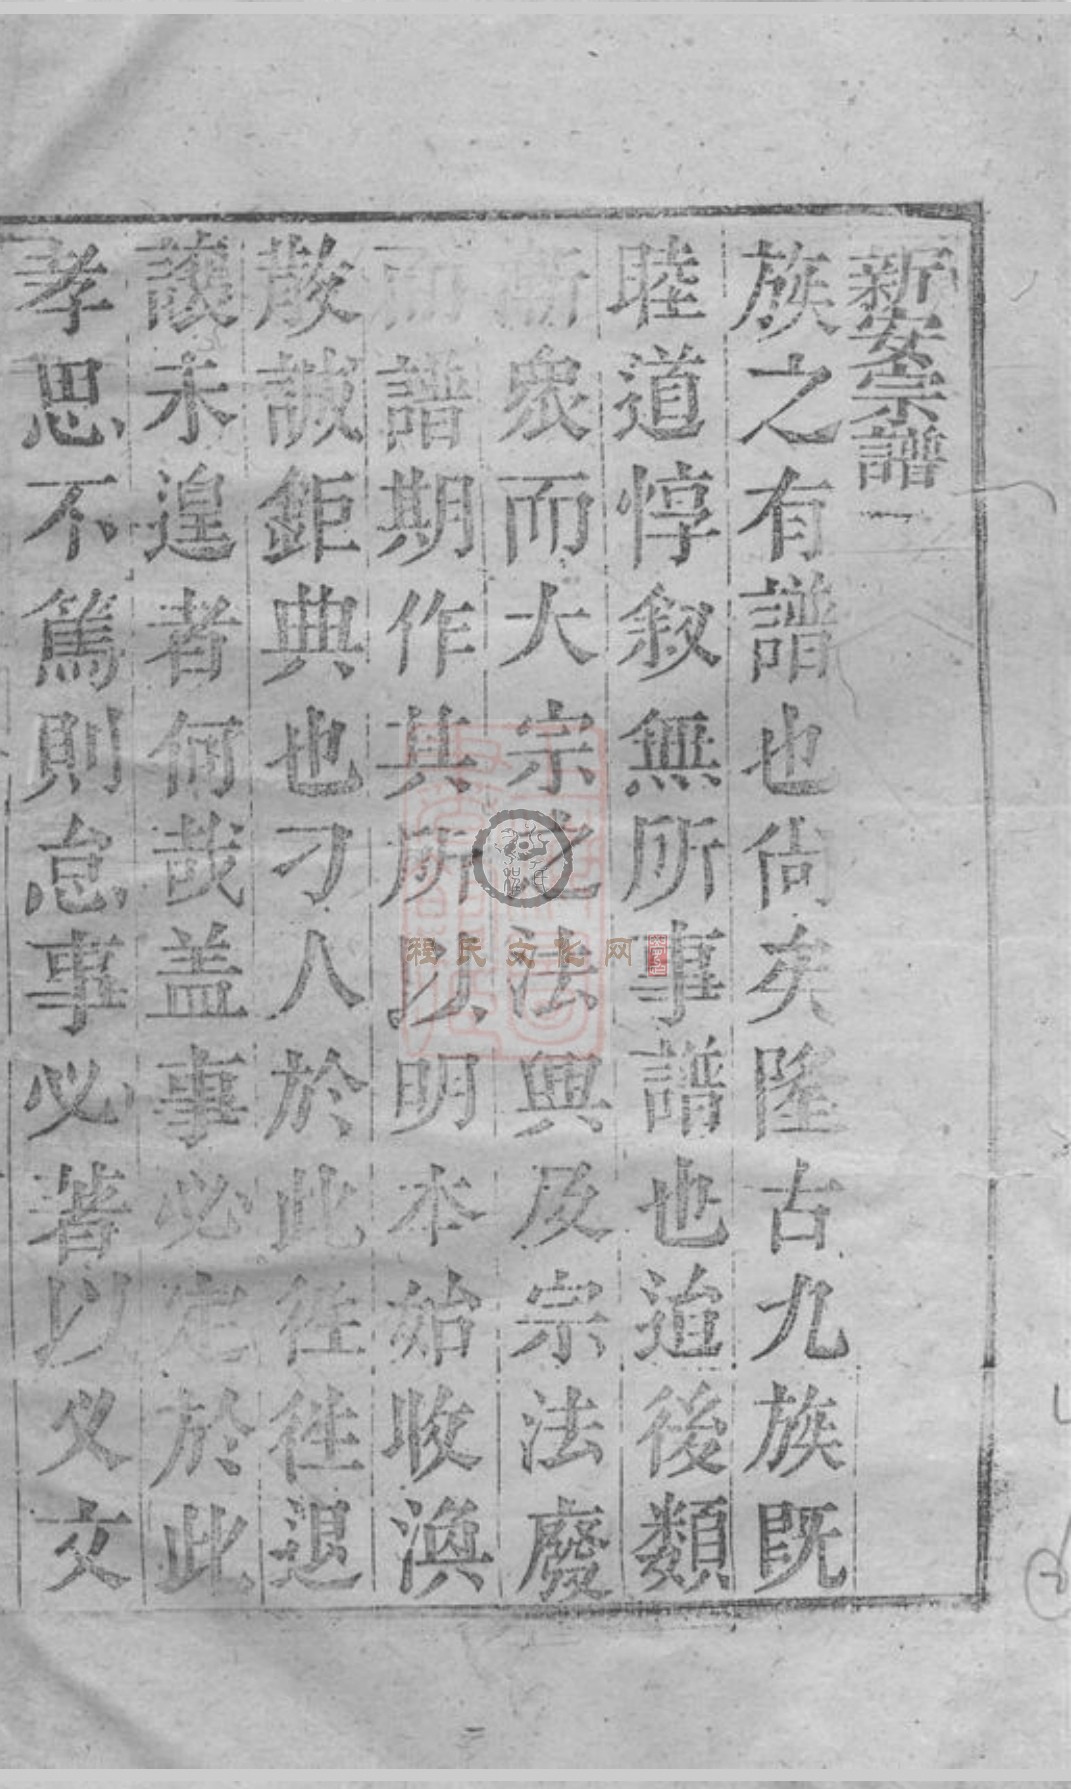 新安宗譜一
族之有譜也尙矣隆古九族既
睦道惇叙無所事譜也迨後類
漸衆而大宗之法興及宗法廢
而譜期作其所以明本始收渙
散誠鉅典也刁人於此徃徃退
讓未遑者何哉盖事必定於此
孝思不篤則怠事必著以义文
程氏文化网